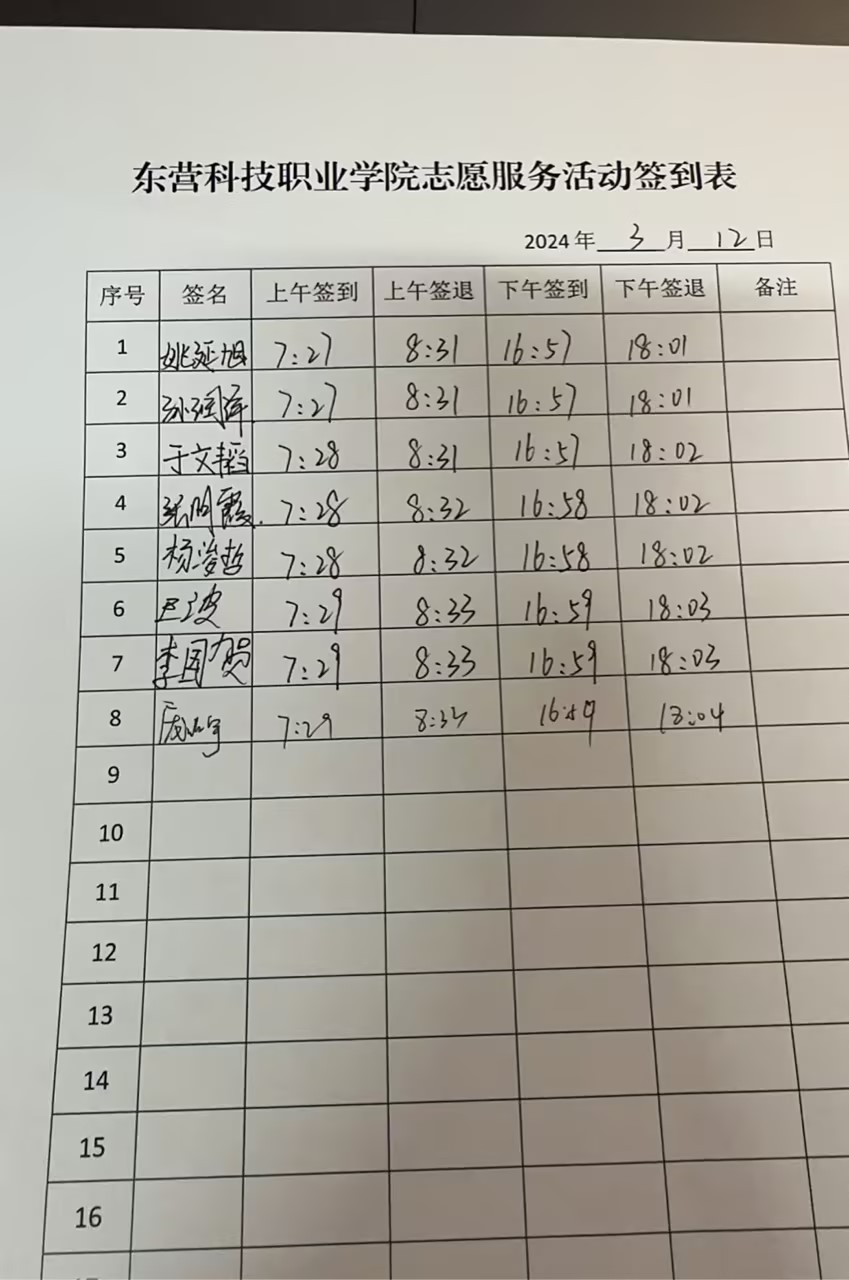 东营科技职业学院志愿服务活动签到表
2024年 3 月 12 日
序号 签名 上午签到 上午签退 下午签到 下午签退 备注
1 姚延旭 7:27 8:31 16:57 18:01
2 7:27 8:31 16:57 18:01
3 于文韬 7:28 8:31 16:57 18:02
4 张明霞 7:28 8:32 16:58 18:02
5 杨浚哲 7:28 8:32 16:58 18:02
6 7:29 8:33 16:59 18:03
7 李国贺 7:29 8:33 16:59 18:03
8 7:29 16:59 18:04
9
10
11
12
13
14
15
16